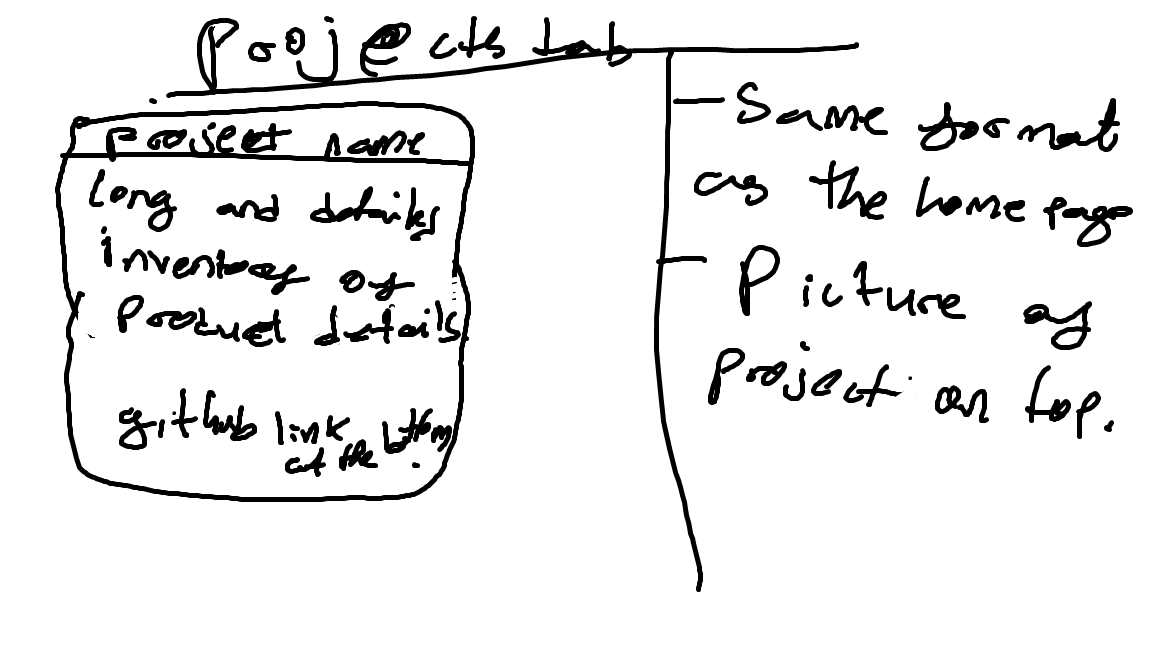 Projects tab
project name
long and details
inventory of
Product details.
github link
at the bottom.
- Same format
as the home page
- Picture of
project on top.